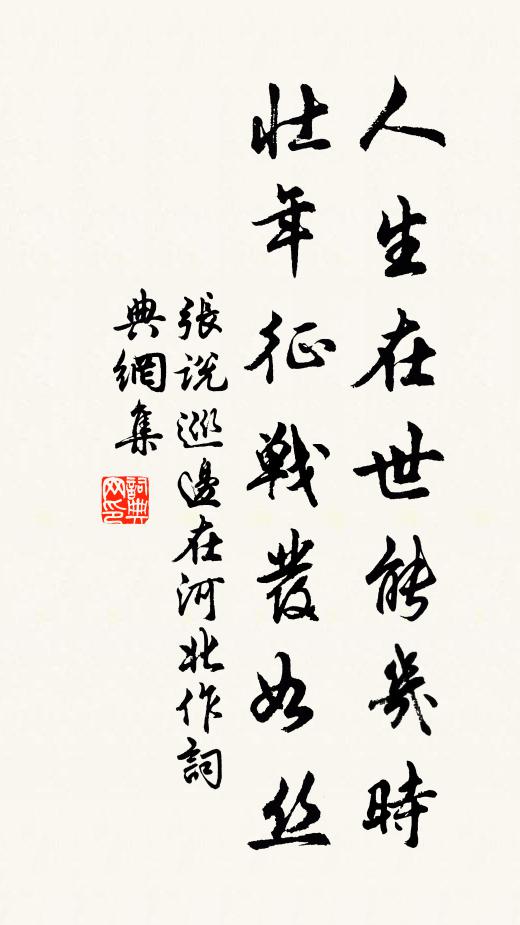 人生在世能幾時
壯年征戰發如絲
張說巡邊在河北作詞
典網集
詞典网印